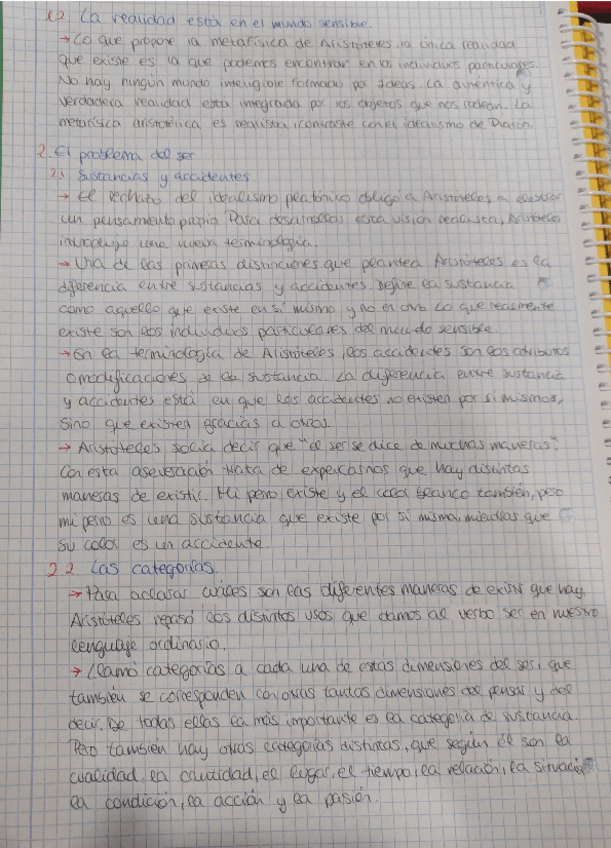 1.2 La realidad está en el mundo sensible.
→ Lo que propone la metafísica de Aristóteles, la única realidad
que existe es la que podemos encontrar en los individuos particulares.
No hay ningún mundo inteligible formado por Ideas. La auténtica y
verdadera realidad está integrada por los objetos que nos rodean. La
metafísica aristotélica es realista, contraste con el idealismo de Platón.
2. El problema del ser
2.1 Sustancias y accidentes
→ El rechazo del idealismo platónico obligó a Aristóteles a elaborar
un pensamiento propio. Para desarrollar esta visión realista, Aristóteles
introdujo una nueva terminología.
→ Una de las primeras distinciones que plantea Aristóteles es la
diferencia entre sustancias y accidentes. Define la sustancia
como aquello que existe en sí mismo y no en otro. Lo que realmente
existe son los individuos particulares del mundo sensible.
→ En la terminología de Aristóteles, los accidentes son los atributos
o modificaciones de la sustancia. La diferencia entre sustancia
y accidentes está en que los accidentes no existen por sí mismos,
sino que existen gracias a otros.
→ Aristóteles solía decir que "el ser se dice de muchas maneras".
Con esta aseveración trata de explicarnos que hay distintas
maneras de existir. Mi perro existe y el color blanco también, pero
mi perro es una sustancia que existe por sí misma, mientras que
su color es un accidente.
2.2 Las categorías.
→ Para aclarar cuáles son las diferentes maneras de existir que hay,
Aristóteles repasó los distintos usos que damos al verbo ser en nuestro
lenguaje ordinario.
→ Llamó categorías a cada una de estas dimensiones del ser, que
también se corresponden con otras tantas dimensiones del pensar y del
decir. De todas ellas la más importante es la categoría de sustancia.
Pero también hay otras categorías distintas, que según él son la
cualidad, la cantidad, el lugar, el tiempo, la relación, la situación
la condición, la acción y la pasión.